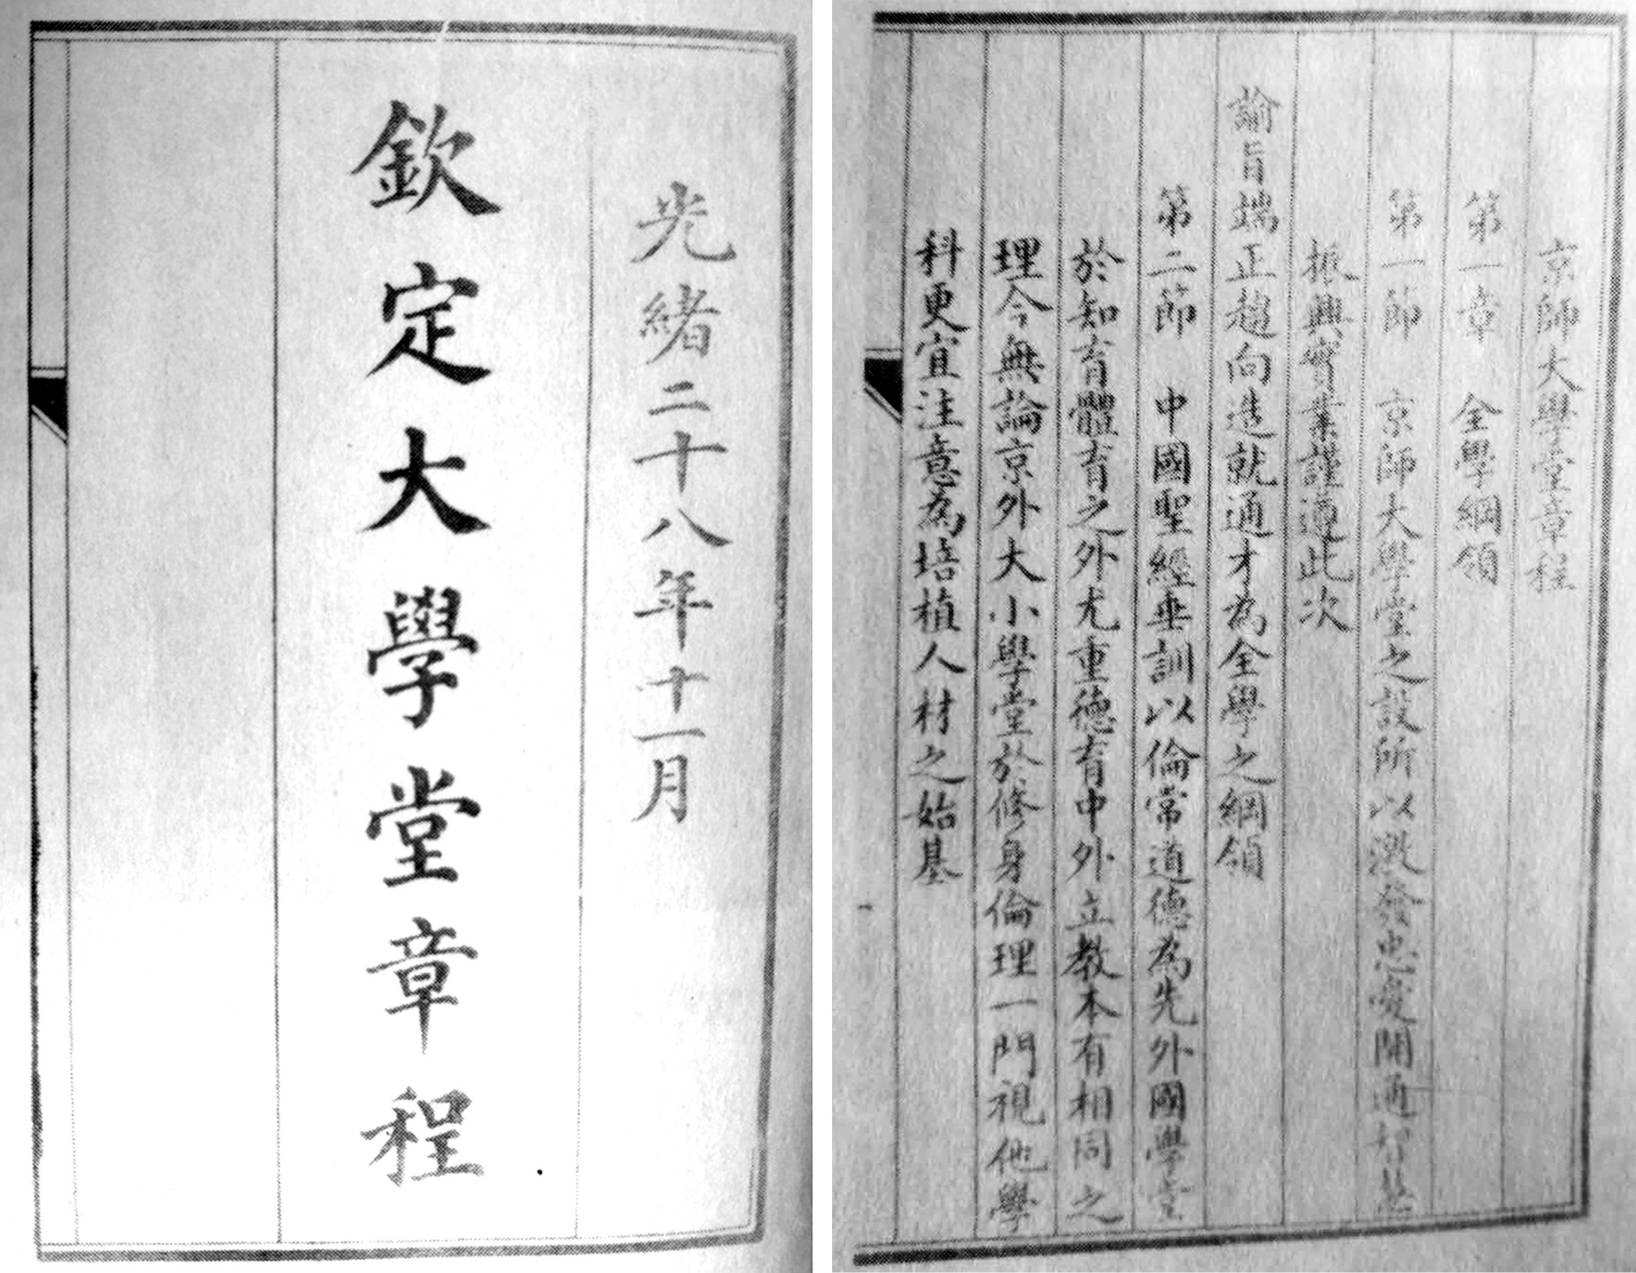 光緒二十八年十一月
欽定大學堂章程
京師大學堂章程
第一章 全學綱領
第一節 京師大學堂之設所以激發忠愛開通智慧
振興實業謹遵此次
諭旨端正趨向造就通才為全學之綱領
第二節 中國聖經垂訓以倫常道德為先外國學堂
於知育體育之外尤重德育中外立教本有相同之
理今無論京外大小學堂於修身倫理一門視他學
科更宜注意為培植人材之始基